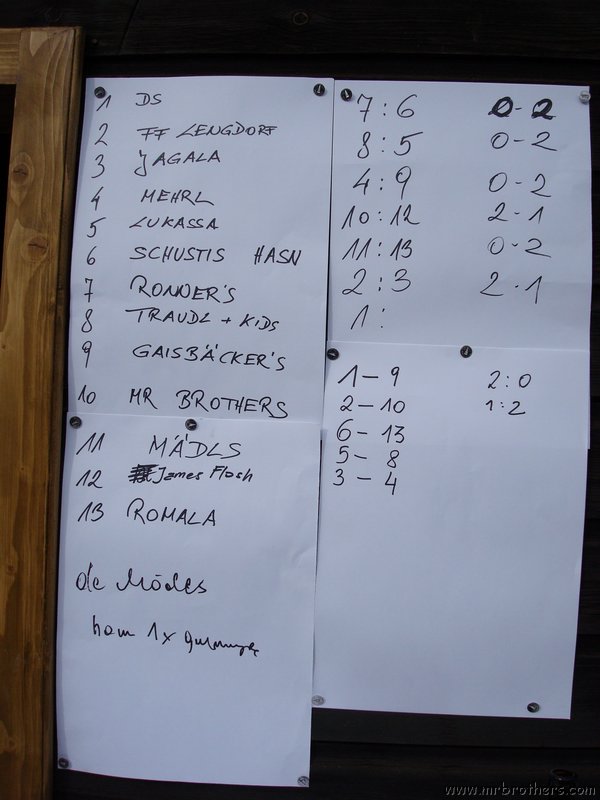 1 DS
2 FF LENGDORF
3 JAGALA
4 MEHRL
5 LUKASSA
6 SCHUSTIS HASN
7 RONNER'S
8 TRAUDL + KIDS
9 GAISBÄCKER'S
10 MR BROTHERS
11 MÄDLS
12 James Flosh
13 ROMALA
de Mödls
ham 1x
7:6 0-2
8:5 0-2
4:9 0-2
10:12 2-1
11:13 0-2
2:3 2-1
1:
1-9 2:0
2-10 1:2
6-13
5-8
3-4
www.mrbrothers.com